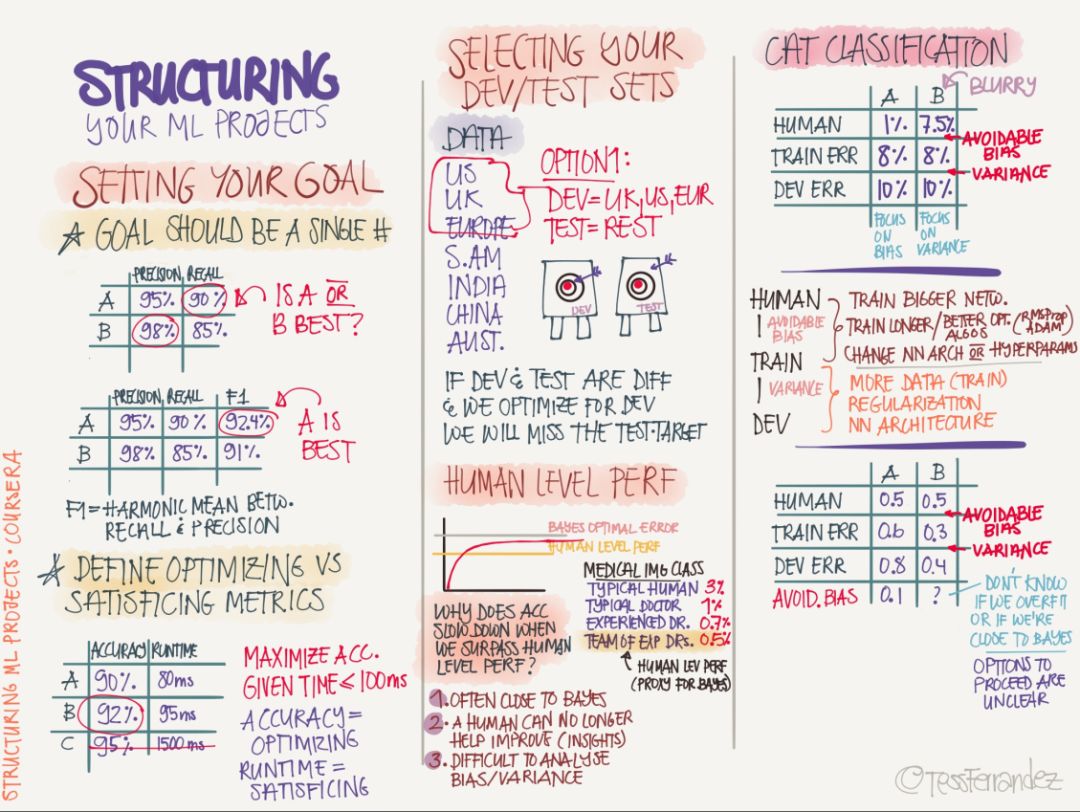 STRUCTURING
YOUR ML PROJECTS
SETTING YOUR GOAL
GOAL SHOULD BE A SINGLE #
PRECISION RECALL
A 95% 90%
B 98% 85%
IS A OR
B BEST?
PRECISION RECALL F1
A 95% 90% 92.4%
B 98% 85% 91%
A IS
BEST
F1 = HARMONIC MEAN BETW.
RECALL & PRECISION
DEFINE OPTIMIZING VS
SATISFICING METRICS
ACCURACY RUNTIME
A 90% 80ms
B 92% 95ms
C 95% 1500ms
MAXIMIZE ACC.
GIVEN TIME ≤ 100ms
ACCURACY =
OPTIMIZING
RUNTIME =
SATISFICING
STRUCTURING ML PROJECTS · COURSERA
SELECTING YOUR
DEV/TEST SETS
DATA
US
UK
EUROPE
S.AM
INDIA
CHINA
AUST.
OPTION1:
DEV=UK,US,EUR
TEST=REST
DEV
TEST
IF DEV & TEST ARE DIFF
& WE OPTIMIZE FOR DEV
WE WILL MISS THE TEST-TARGET
HUMAN LEVEL PERF
BAYES OPTIMAL ERROR
HUMAN LEVEL PERF
MEDICAL IMG CLASS
TYPICAL HUMAN 3%
TYPICAL DOCTOR 1%
EXPERIENCED DR. 0.7%
TEAM OF EXP DRS. 0.5%
HUMAN LEV PERF
(PROXY FOR BAYES)
WHY DOES ACC
SLOW DOWN WHEN
WE SURPASS HUMAN
LEVEL PERF?
1. OFTEN CLOSE TO BAYES
2. A HUMAN CAN NO LONGER
HELP IMPROVE (INSIGHTS)
3. DIFFICULT TO ANALYSE
BIAS/VARIANCE
CAT CLASSIFICATION
A B
BLURRY
HUMAN 1% 7.5%
TRAIN ERR 8% 8%
DEV ERR 10% 10%
AVOIDABLE
BIAS
VARIANCE
FOCUS
ON
BIAS
FOCUS
ON
VARIANCE
HUMAN
AVOIDABLE
BIAS
TRAIN
VARIANCE
DEV
TRAIN BIGGER NETW.
TRAIN LONGER/BETTER OPT. (RMSProp
ALGOS ADAM)
CHANGE NN ARCH OR HYPERPARAMS
MORE DATA (TRAIN)
REGULARIZATION
NN ARCHITECTURE
A B
HUMAN 0.5 0.5
TRAIN ERR 0.6 0.3
DEV ERR 0.8 0.4
AVOID. BIAS 0.1 ?
AVOIDABLE
BIAS
VARIANCE
DON'T KNOW
IF WE OVERFIT
OR IF WE'RE
CLOSE TO BAYES
OPTIONS TO
PROCEED ARE
UNCLEAR
©TessFerrandez